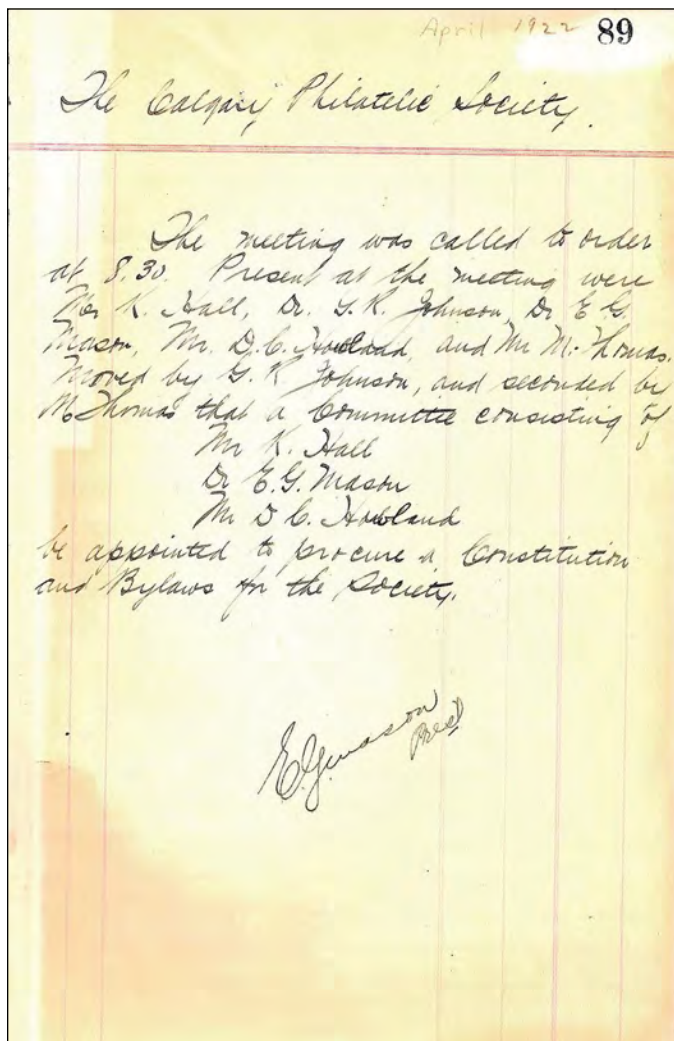 April 1922 89
The Calgary Philatelic Society.
The meeting was called to order
at 8.30. Present at the meeting were
Mr K. Hall, Dr. G.R. Johnson, Dr E G.
Mason, Mr. D.C. Howland, and Mr M. Thomas.
Moved by G.R. Johnson, and seconded by
M Thomas that a Committee consisting of
Mr K. Hall
Dr E.G. Mason
Mr D C. Howland
be appointed to procure a Constitution
and Bylaws for the Society.
E.G. Mason
Pres.